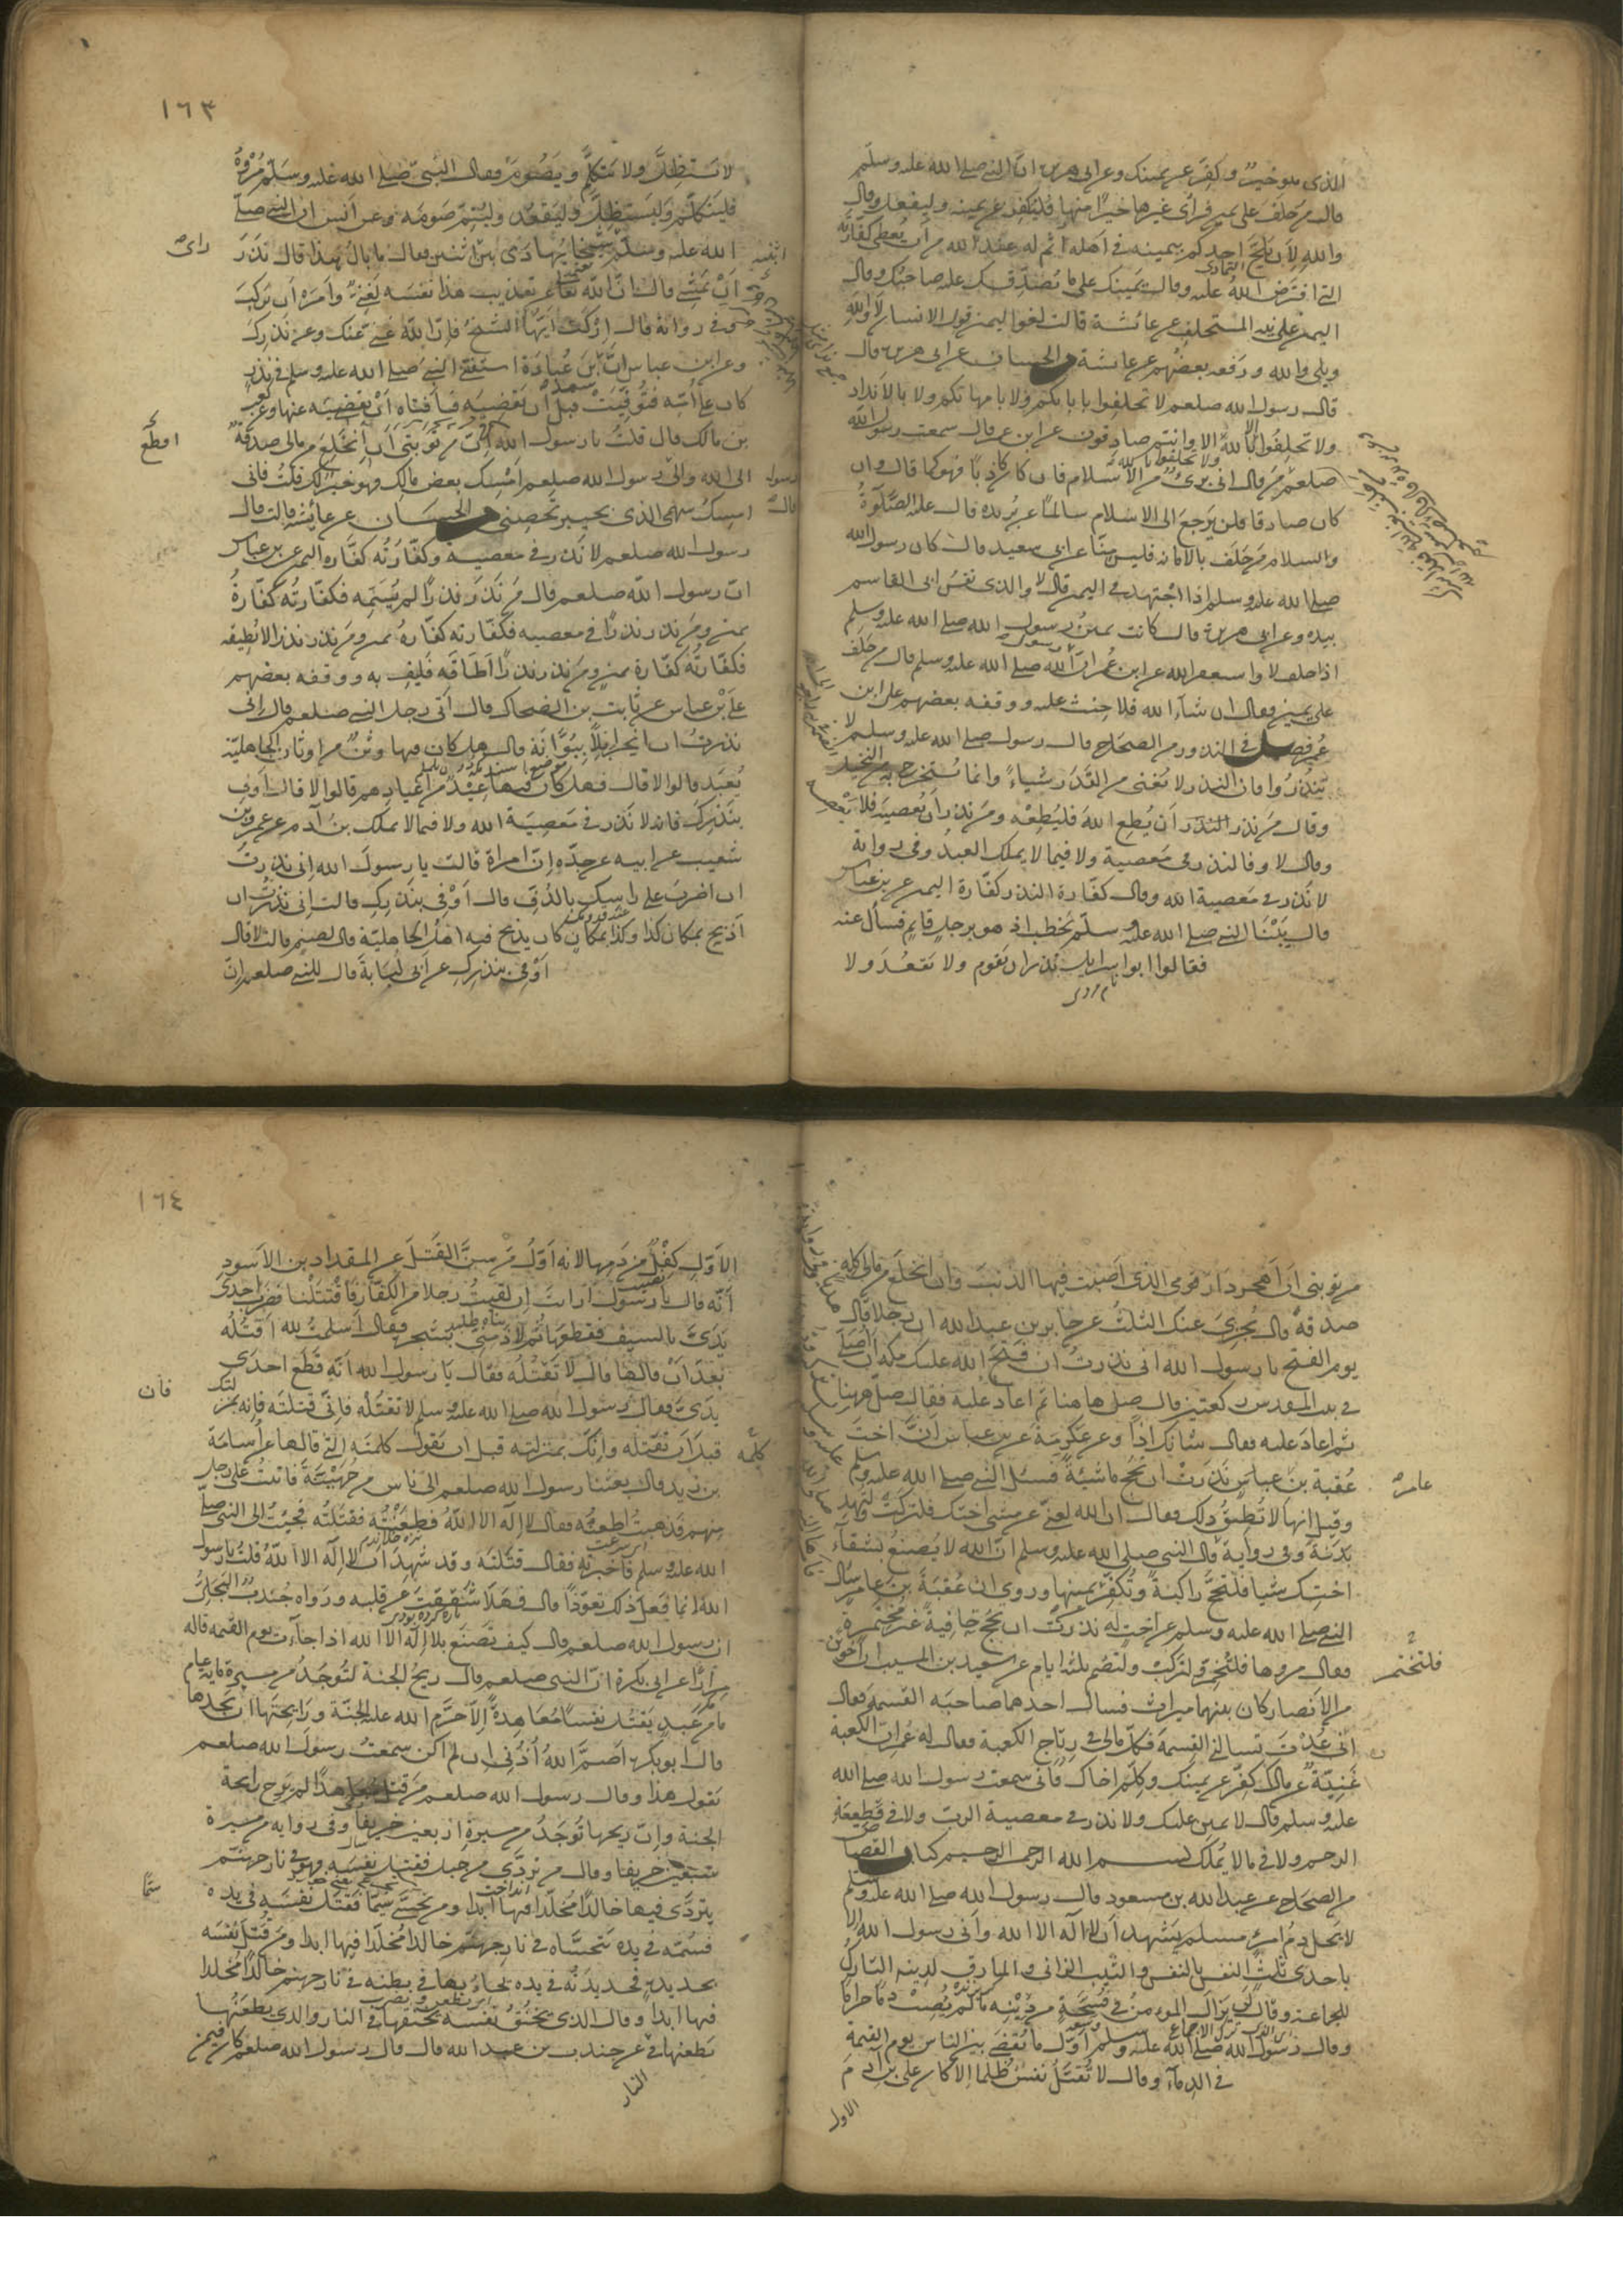 الذي هو خير وكفر عن يمينك وعن ابى هريرة ان النبي صلى الله عليه وسلم
قال من حلف على يمين فراى غيرها خيرا منها فليكفر عن يمينه وليفعل وقال
والله لان يلج احدكم بيمينه في اهله اثم له عند الله من ان يعطى كفارته
التى افترض الله عليه وقال يمينك على ما يصدقك عليه صاحبك وقال
اليمين على نية المستحلف عن عائشة قالت لغو اليمين قول الانسان لا والله
وبلى والله ورفعه بعضهم عن عائشة والحسان عن ابى هريرة قال
قال رسول الله صلعم لا تحلفوا بابائكم ولا بامهاتكم ولا بالانداد
ولا تحلفوا بالله الا وانتم صادقون عن ابن عمر قال سمعت رسول الله
صلعم من قال انى برئ من الاسلام فان كان كاذبا فهو كما قال وان
كان صادقا فلن يرجع الى الاسلام سالما عن بريده قال عليه الصلوة
والسلام من حلف بالامانة فليس منا عن ابى سعيد قال كان رسول الله
صلى الله عليه وسلم اذا اجتهد في اليمين قال لا والذى نفس ابى القاسم
بيده وعن ابى هريرة قال كانت يمين رسول الله صلى الله عليه وسلم
اذا حلف لا واستغفر الله عن ابن عمر ان رسول الله صلى الله عليه وسلم قال من حلف
على يمين فقال ان شاء الله فلا حنث عليه ووقفه بعضهم على ابن
عمر فصل في النذور من الصحاح قال رسول صلى الله عليه وسلم لا
تنذروا فان النذر لا يغنى من القدر شياء وانما يستخرج به من البخيل
وقال من نذر ان يطيع الله فليطعه ومن نذر ان يعصيه فلا يعصه
وقال لا وفا لنذر في معصية ولا فيما لا يملك العبد وفى رواية
لا نذر في معصية الله وقال كفارة النذر كفارة اليمين عن بن عباس
قال بينا النبي صلى الله عليه وسلم يخطب اذ هو برجل قايم فسأل عنه
فقالوا ابو اسرايل نذر ان يقوم ولا يقعد ولا
١٦٣
لا يستظل ولا يتكلم ويصوم فقال النبي صلى الله عليه وسلم مروه
فليتكلم وليستظل وليقعد وليتم صومه وعن انس ان النبي صلى
الله عليه وسلم شيخا يهادى بين اثنين فقال ما بال هذا قال نذر
راى
ابنيه
ان يمشى قال ان الله تعا عن تعذيب هذا نفسه لغنى وامره ان يركب
وفى رواية قال اركب ايها الشيخ فان الله غنى عنك وعن نذرك
وعن ابن عباس ان بن عبادة استفتى النبي صلى الله عليه وسلم في نذر
سعد
كان على امه فتوفيت قبل ان تقضيه فافتاه ان يقضيه عنها وعن كعب
بن مالك قال قلت يا رسول الله ان من توبتى ان انخلع من مالى صدقة
الى الله والى رسول الله صلعم امسك بعض مالك فهو خير لك فقلت فانى
امسك سهمى الذى بخيبر تحصننى والحسان عن عائشة قالت قال
رسول الله صلعم لا نذر في معصية وكفارته كفارة اليمين عن بن عباس
ان رسول الله صلعم قال من نذر نذرا لم يسمه فكفارته كفارة
يمين ومن نذر نذرا في معصيه فكفارته كفارة يمين ومن نذر نذرا لا يطيقه
فكفارته كفارة يمين ومن نذر نذرا اطاقه فليف به ووقفه بعضهم
على بن عباس عن ثابت بن الضحاك قال اتى رجل النبي صلعم قال انى
نذرت ان انحر ابلا ببوانة قال هل كان فيها وثن من اوثان الجاهلية
يعبد قالوا لا قال فهل كان فيها عيد من اعيادهم قالوا لا قال اوف
بنذرك فانه لا نذر في معصية الله ولا فيما لا يملك بن آدم عن عمرو بن
شعيب عن ابيه عن جده ان امراة قالت يا رسول الله انى نذرت
ان اضرب على راسك بالدف قال اوفى بنذرك قالت انى نذرت ان
اذبح بمكان كذا وكذا بمكان كان يذبح فيه اهل الجاهلية قال لصنم قالت لا قال
اوفى بنذرك عن ابى لبابة قال للنبي صلعم ان
من توبتى ان اهجر دار قومى الذى اصبت فيها الذنب وان انخلع من مالى كله
صدقة قال يجزى عنك الثلث عن جابر بن عبد الله ان رجلا قال
يوم الفتح يا رسول الله انى نذرت ان فتح الله عليك مكه ان اصلى
في بيت المقدس ركعتين قال صل هاهنا ثم اعاد عليه فقال صل ههنا
ثم اعاد عليه فقال شانك اذا وعن عكرمة عن بن عباس ان اخت
عقبة بن عباس نذرت ان تحج ماشية فسئل النبي صلى الله عليه وسلم
عامر
وقيل انها لا تطيق ذلك فقال ان الله لغنى عن مشى اختك فلتركب ولتهد
بدنة وفى رواية قال النبي صلى الله عليه وسلم ان الله لا يصنع بشقاء
اختك شيا فلتحج راكبة وتكفر يمينها وروى ان عقبة بن عامر سال
النبي صلى الله عليه وسلم عن اخت له نذرت ان تحج حافية غير مختمرة
فقال مروها فلتختمر ولتركب ولتصم ثلثة ايام عن سعيد بن المسيب ان اخوين
فلتختمر
من الانصار كان بينهما ميراث فسال احدهما صاحبه القسمة فقال
ان عدت تسالنى القسمة فكل مالى في رتاج الكعبة فقال له عمر ان الكعبة
غنية عن مالك كفر عن يمينك وكلم اخاك فانى سمعت رسول الله صلى الله
عليه وسلم قال لا يمين عليك ولا نذر في معصية الرب ولا في قطيعة
الرحم ولا في ما لا يملك بسم الله الرحمن الرحيم كتاب القصاص
من الصحاح عن عبد الله بن مسعود قال رسول الله صلى الله عليه وسلم
لا يحل دم امرئ مسلم يشهد ان لا اله الا الله وانى رسول الله الا
باحدى ثلث النفس بالنفس والثيب الزانى والمارق لدينه التارك
للجماعة وقال لن يزال المومن في فسحة من دينه ما لم يصب دما حراما
وقال رسول الله صلى الله عليه وسلم اول ما يقضى بين الناس يوم القيمة
في الدماء وقال لا تقتل نفس ظلما الا كان على بن آدم
الاول
١٦٤
الاول كفل من دمها لانه اول من سن القتل عن المقداد بن الاسود
انه قال يا رسول ارايت ان لقيت رجلا من الكفار فاقتتلنا فضرب احدى
يدى بالسيف فقطعها ثم لاذ منى بشجر فقال اسلمت لله اقتله
بعد ان قالها قال لا تقتله فقال يا رسول الله انه قطع احدى
يدى فقال رسول الله صلى الله عليه وسلم لا تقتله فانى قتلته فانه بمنز
فان
لتك
قبل ان تقتله وانك بمنزلته قبل ان يقول كلمته التى قالها عن اسامة
بن زيد قال بعثنا رسول الله صلعم الى ناس من جهينة فاتيت على رجل
منهم فذهبت اطعنه فقال لا اله الا الله فطعنته فقتلته فجئت الى النبي صلى
الله عليه وسلم فاخبرته فقال قتلته وقد شهد ان لا اله الا الله قلت يا رسول
الله انما فعل ذلك تعوذا قال فهلا شققت عن قلبه ورواه جندب البجلى
ان رسول الله صلعم قال كيف تصنع بلا اله الا الله اذا جاءت يوم القيمة قاله
مرارا عن ابى بكرة ان النبي صلعم قال ريح الجنة لتوجد من مسيرة ماية عام
ما من عبد يقتل نفسا معاهدة الا حرم الله عليه الجنة ورايحتها ان يجدها
قال ابو بكرة اصم الله اذنى ان لم اكن سمعت رسول الله صلعم
يقول هذا وقال رسول الله صلعم من قتل معاهدا لم يرح رايحة
الجنة وان ريحها توجد من مسيرة اربعين خريفا وفى رواية من مسيرة
سبعين خريفا وقال من تردى من جبل فقتل نفسه فهو في نار جهنم
يتردى فيها خالدا مخلدا فيها ابدا ومن تحسى سما فقتل نفسه في يده
سما
فسمه في يده يتحساه في نار جهنم خالدا مخلدا فيها ابدا ومن قتل نفسه
بحديدة فحديدته في يده يجاء بها في بطنه في نار جهنم خالدا مخلدا
فيها ابدا وقال الذى يخنق نفسه يخنقها في النار والذى يطعنها
يطعنها في عن جندب بن عبد الله قال قال رسول الله صلعم كان فيمن
النار